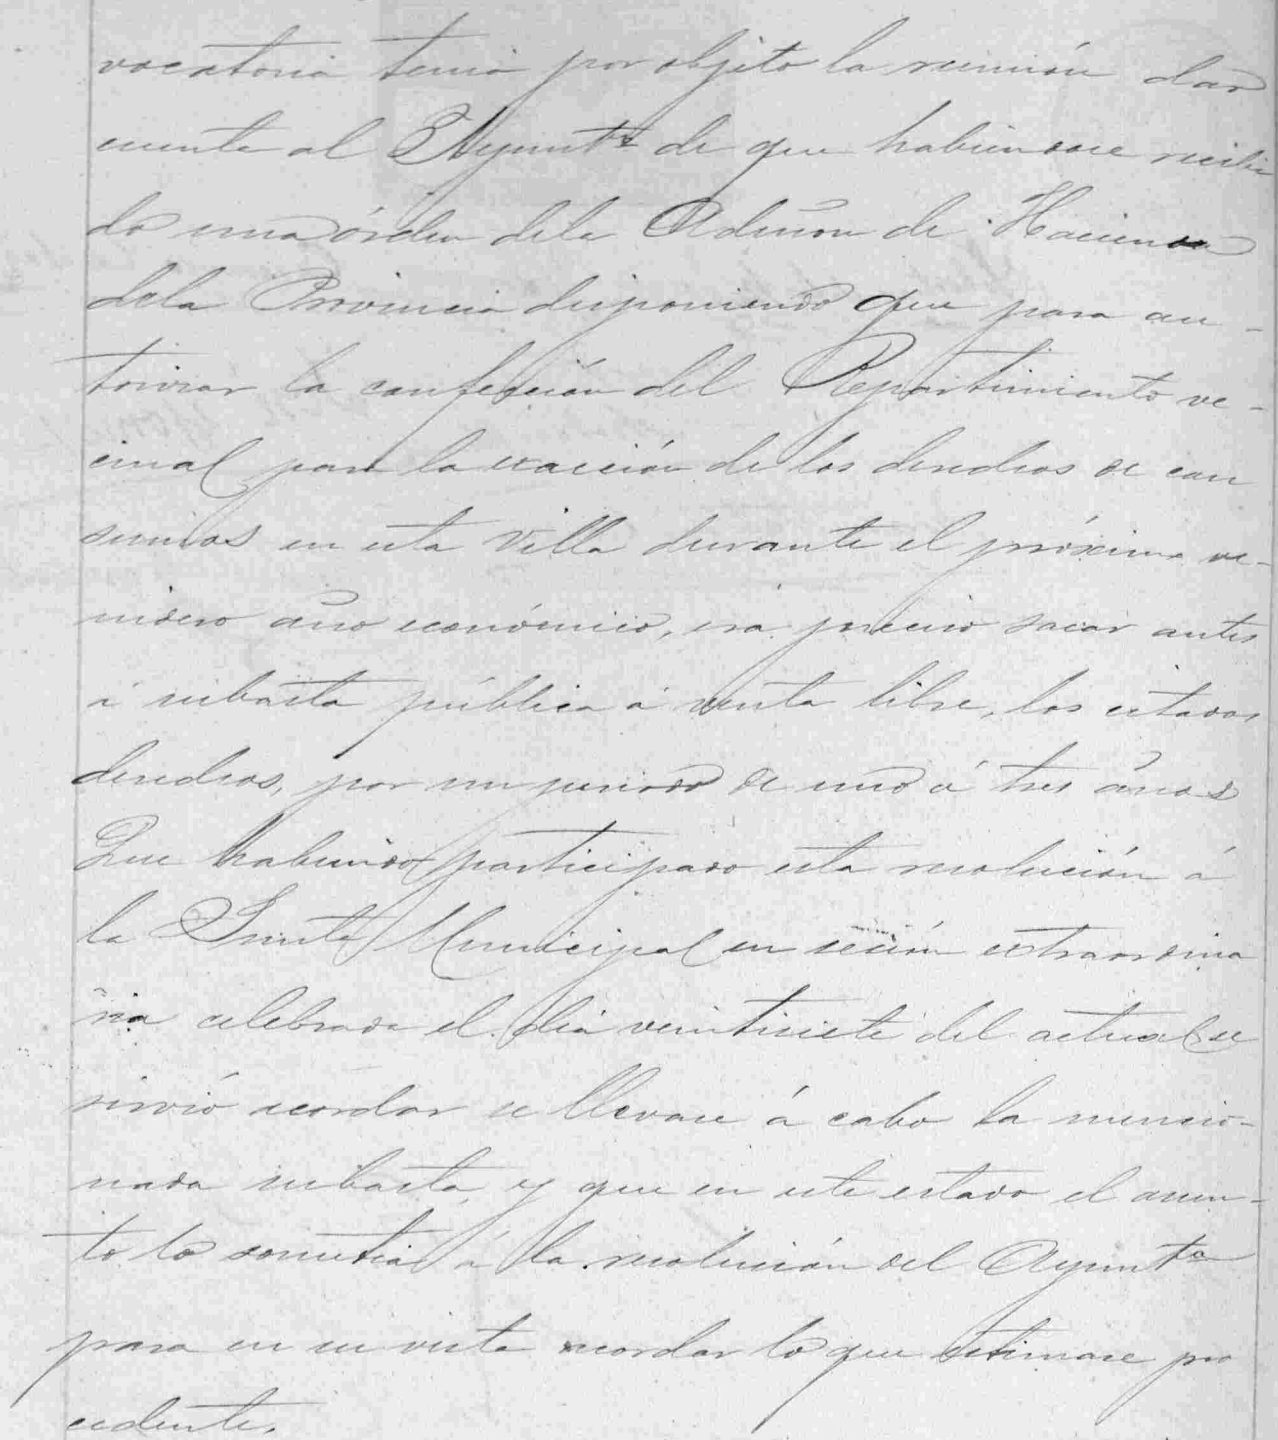 vocatoria tenia por objeto la reunión dar
cuenta al Ayuntº de que habiendose recibi
do una órden dela Admon de Hacienda
dela Provincia disponiendo que para au-
torizar la confección del Repartimiento ve-
cinal para la exacción de los derechos de con
sumos en esta Villa durante el próximo ve-
nidero año económico, era preciso sacar antes
á subasta pública á venta libre, los citados
derechos, por un periodo de uno á tres años
Que habiendo participado esta resolución á
la Junta Municipal en sesión extraordina
ria celebrada el dia veintisiete del actual se
sirvió acordar se llevase á cabo la mencio-
nada subasta y que en este estado el asun-
to lo sometia á la resolución del Ayuntº
para en su vista acordar lo que estimase pro
cedente.